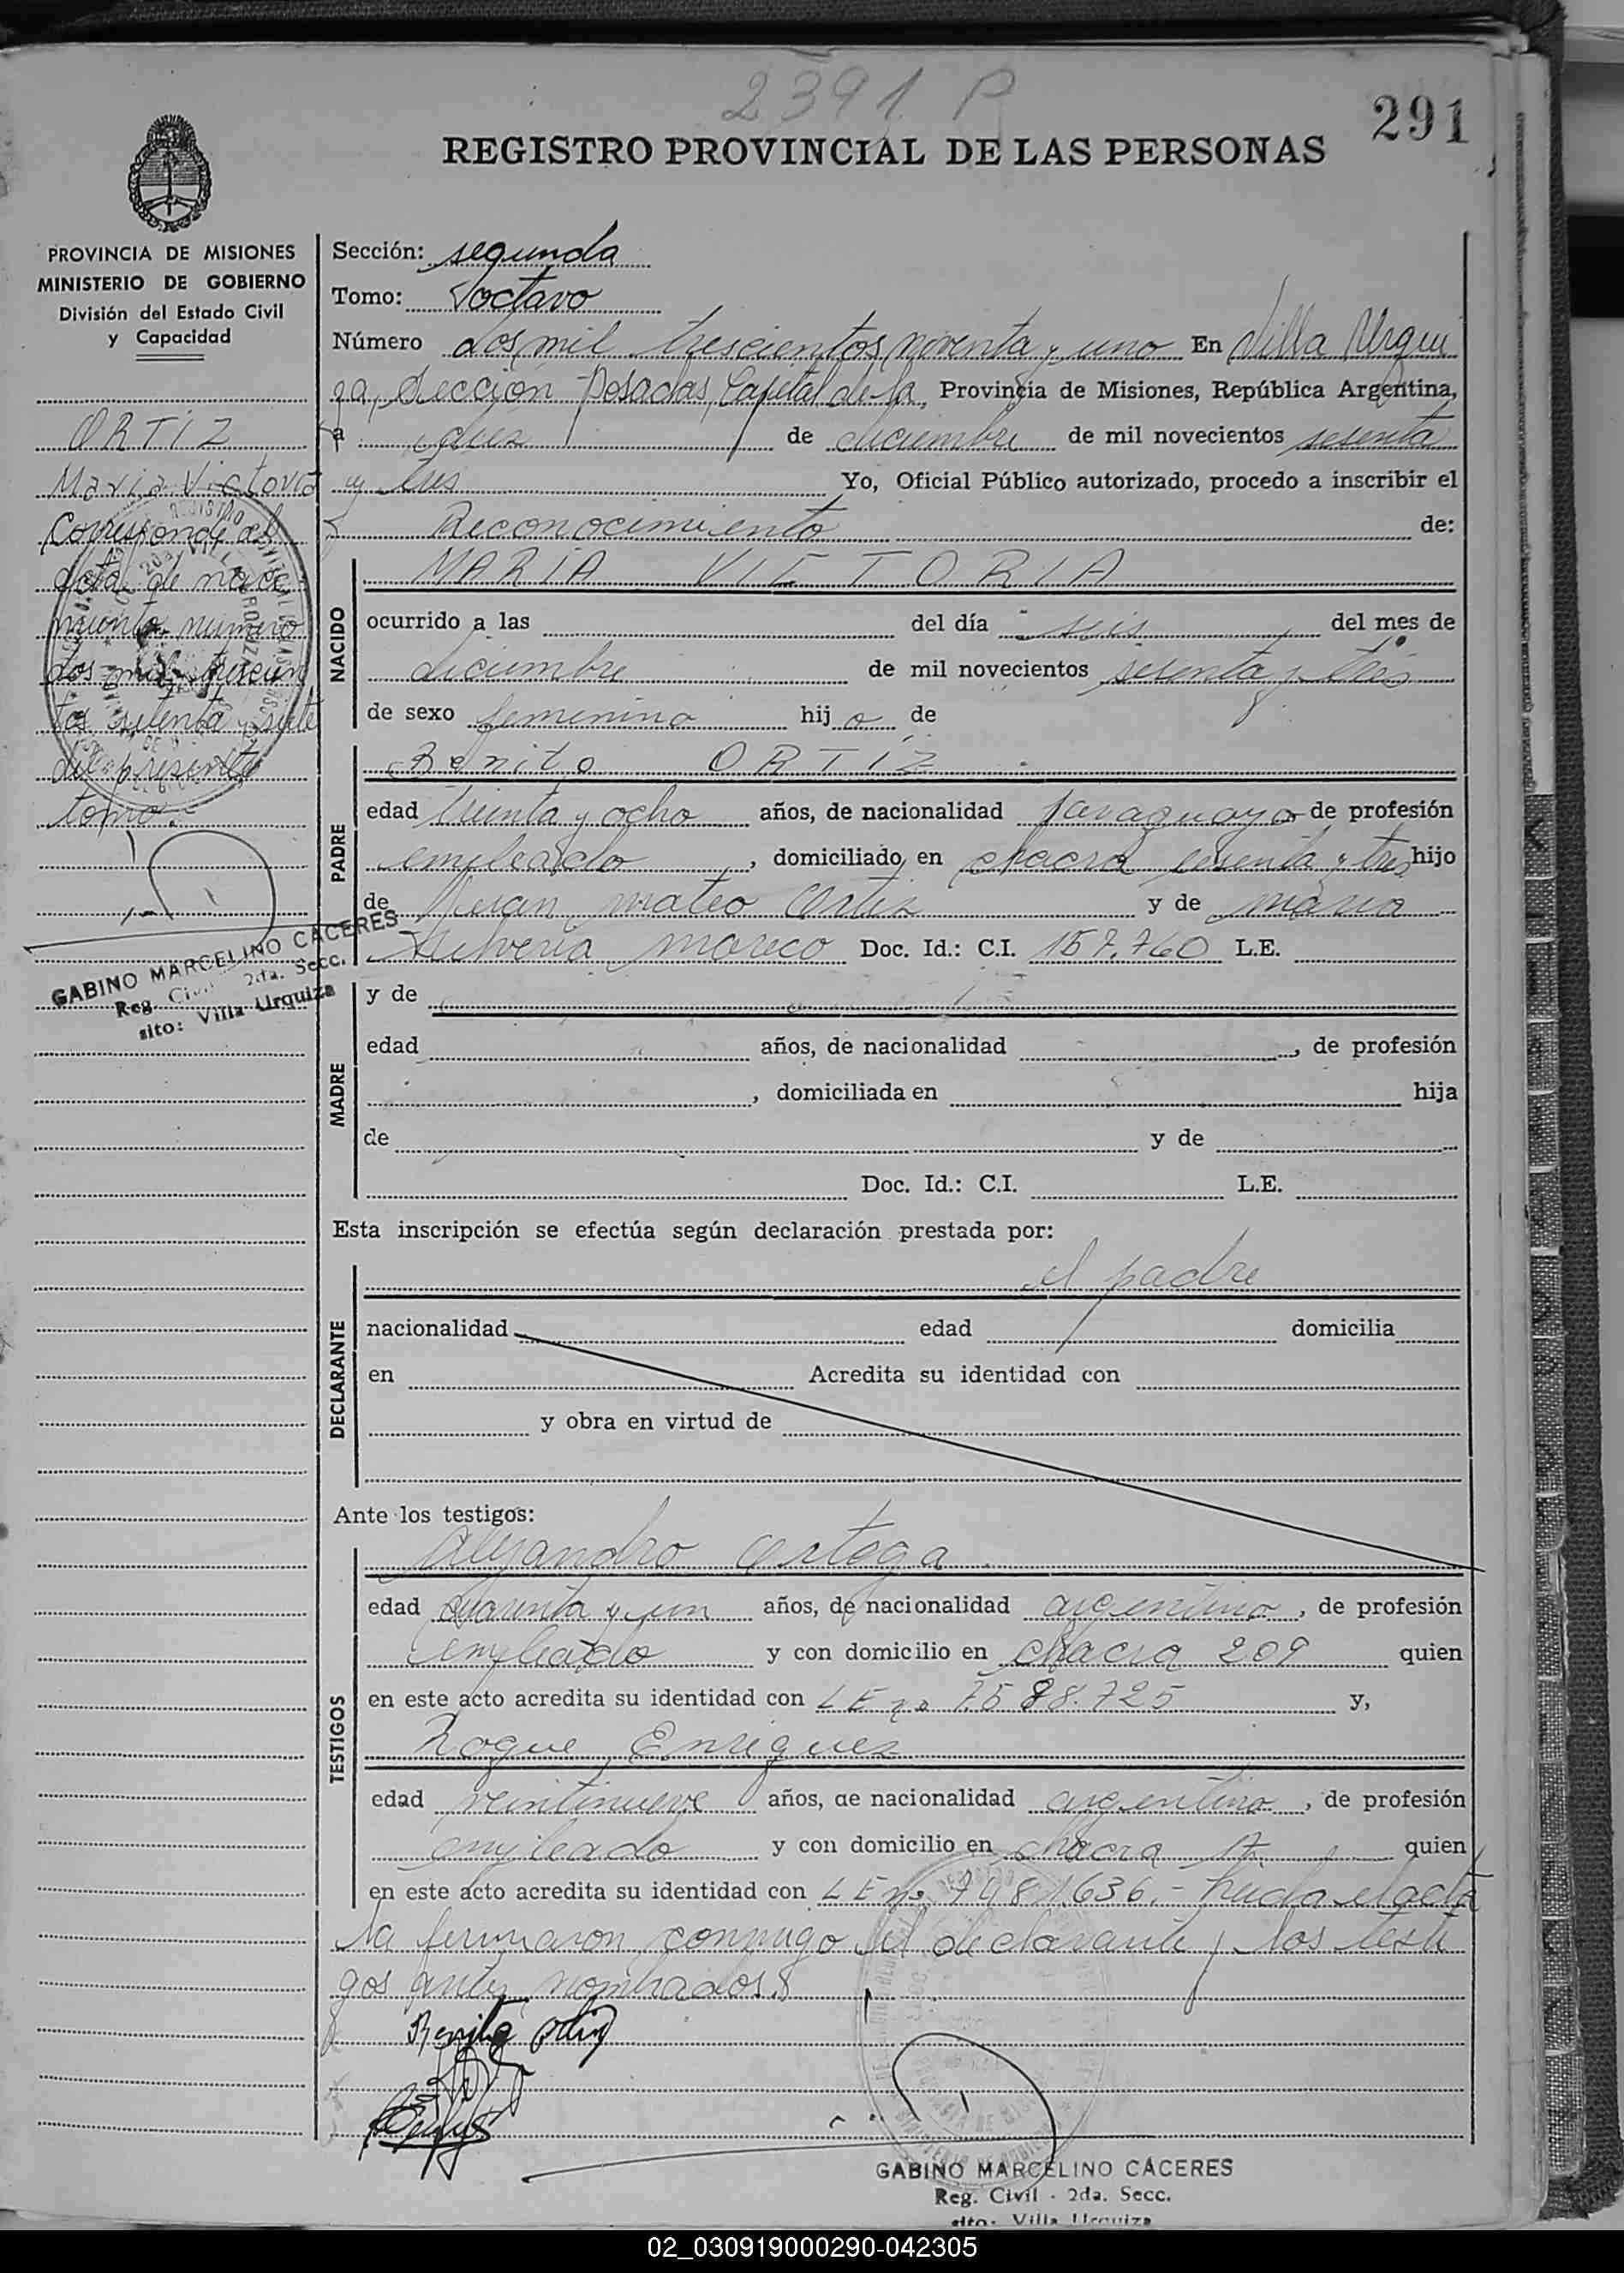 2391 P
291
REGISTRO PROVINCIAL DE LAS PERSONAS
PROVINCIA DE MISIONES
MINISTERIO DE GOBIERNO
División del Estado Civil
y Capacidad
ORTIZ
Maria Victoria
Corresponde al
acta de naci
miento numero
dos mil trescien
tos setenta y siete
del presente
tomo.-
GABINO MARCELINO CACERES
Reg. Civil 2da. Secc.
sito: Villa Urquiza
Sección: segunda
Tomo: octavo
Número dos mil trescientos noventa y uno En Villa Urqui
za, Sección Posadas, Capital de la, Provincia de Misiones, República Argentina,
a diez de diciembre de mil novecientos sesenta
y tres Yo, Oficial Público autorizado, procedo a inscribir el
Reconocimiento de:
NACIDO
MARIA VICTORIA
ocurrido a las del día seis del mes de
diciembre de mil novecientos sesenta y tres
de sexo femenino hija de
PADRE
Benito ORTIZ
edad treinta y ocho años, de nacionalidad paraguaya de profesión
empleado, domiciliado en chacra sesenta y tres hijo
de Juan mateo Ortiz y de maria
Silveria mareco Doc. Id.: C.I. 157.760 L.E.
MADRE
y de
edad años, de nacionalidad , de profesión
, domiciliada en hija
de y de
Doc. Id.: C.I. L.E.
Esta inscripción se efectúa según declaración prestada por:
DECLARANTE
el padre
nacionalidad edad domicilia
en Acredita su identidad con
y obra en virtud de
Ante los testigos:
TESTIGOS
Alejandro Ortega
edad cuarenta y un años, de nacionalidad argentino, de profesión
empleado y con domicilio en chacra 209 quien
en este acto acredita su identidad con L E no 7.588.725 y,
Roque Enriquez
edad veintinueve años, de nacionalidad argentino, de profesión
empleado y con domicilio en chacra 17. quien
en este acto acredita su identidad con L E no 7481636.- Leida el acta
la firmaron conmigo el declarante y los testi
gos antes nombrados.
Benito Ortiz
GABINO MARCELINO CACERES
Reg. Civil - 2da. Secc.
sito: Villa Urquiza
02_030919000290-042305